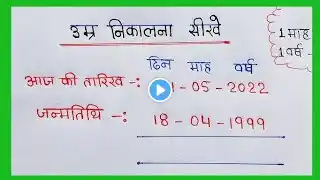 उम्र निकालना सीखे
1 माह
1 वर्ष -
दिन माह वर्ष
आज की तारिख -: 1 - 05 - 2022
जन्मतिथि -: 18 - 04 - 1999